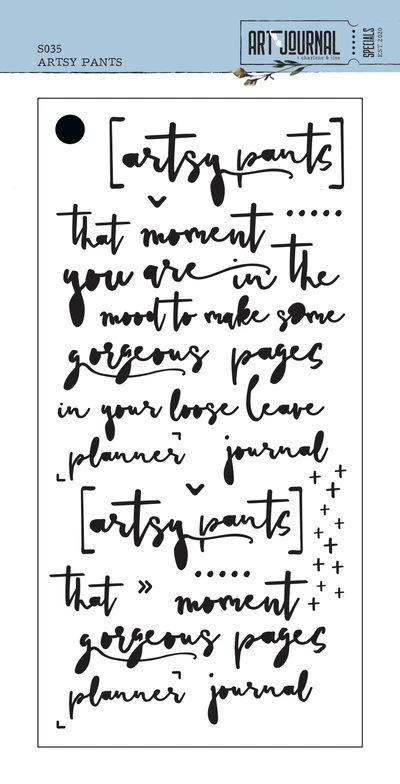 S035
ARTSY PANTS
ART JOURNAL
SPECIALS
EST 2020
[artsy pants]
that moment
you are in the
mood to make some
gorgeous pages
in your loose leave
planner journal
[artsy pants]
that » moment
gorgeous pages
planner journal